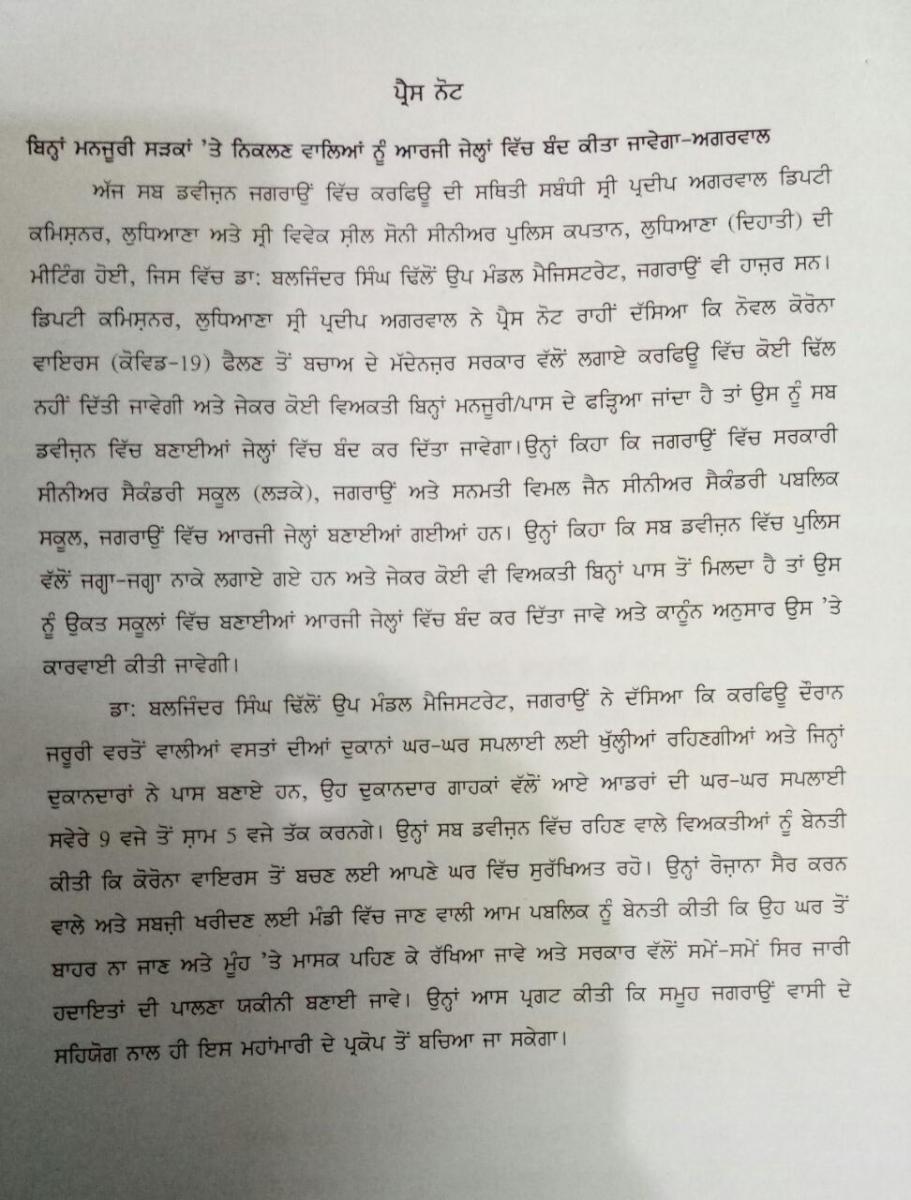 ਪ੍ਰੈਸ ਨੋਟ
ਬਿਨ੍ਹਾਂ ਮਨਜੂਰੀ ਸੜਕਾਂ 'ਤੇ ਨਿਕਲਣ ਵਾਲਿਆਂ ਨੂੰ ਆਰਜੀ ਜੇਲ੍ਹਾਂ ਵਿੱਚ ਬੰਦ ਕੀਤਾ ਜਾਵੇਗਾ-ਅਗਰਵਾਲ
ਅੱਜ ਸਬ ਡਵੀਜ਼ਨ ਜਗਰਾਉਂ ਵਿੱਚ ਕਰਫਿਊ ਦੀ ਸਥਿਤੀ ਸਬੰਧੀ ਸ੍ਰੀ ਪ੍ਰਦੀਪ ਅਗਰਵਾਲ ਡਿਪਟੀ
ਕਮਿਸ਼ਨਰ, ਲੁਧਿਆਣਾ ਅਤੇ ਸ੍ਰੀ ਵਿਵੇਕ ਸ਼ੀਲ ਸੋਨੀ ਸੀਨੀਅਰ ਪੁਲਿਸ ਕਪਤਾਨ, ਲੁਧਿਆਣਾ (ਦਿਹਾਤੀ) ਦੀ
ਮੀਟਿੰਗ ਹੋਈ, ਜਿਸ ਵਿੱਚ ਡਾ: ਬਲਜਿੰਦਰ ਸਿੰਘ ਢਿੱਲੋਂ ਉਪ ਮੰਡਲ ਮੈਜਿਸਟਰੇਟ, ਜਗਰਾਉਂ ਵੀ ਹਾਜ਼ਰ ਸਨ।
ਡਿਪਟੀ ਕਮਿਸ਼ਨਰ, ਲੁਧਿਆਣਾ ਸ੍ਰੀ ਪ੍ਰਦੀਪ ਅਗਰਵਾਲ ਨੇ ਪ੍ਰੈਸ ਨੋਟ ਰਾਹੀਂ ਦੱਸਿਆ ਕਿ ਨੋਵਲ ਕੋਰੋਨਾ
ਵਾਇਰਸ (ਕੋਵਿਡ-19) ਫੈਲਣ ਤੋਂ ਬਚਾਅ ਦੇ ਮੱਦੇਨਜ਼ਰ ਸਰਕਾਰ ਵੱਲੋਂ ਲਗਾਏ ਕਰਫਿਊ ਵਿੱਚ ਕੋਈ ਢਿੱਲ
ਨਹੀਂ ਦਿੱਤੀ ਜਾਵੇਗੀ ਅਤੇ ਜੇਕਰ ਕੋਈ ਵਿਅਕਤੀ ਬਿਨ੍ਹਾਂ ਮਨਜੂਰੀ/ਪਾਸ ਦੇ ਫੜ੍ਹਿਆ ਜਾਂਦਾ ਹੈ ਤਾਂ ਉਸ ਨੂੰ ਸਬ
ਡਵੀਜ਼ਨ ਵਿੱਚ ਬਣਾਈਆਂ ਜੇਲ੍ਹਾਂ ਵਿੱਚ ਬੰਦ ਕਰ ਦਿੱਤਾ ਜਾਵੇਗਾ।ਉਨ੍ਹਾਂ ਕਿਹਾ ਕਿ ਜਗਰਾਉਂ ਵਿੱਚ ਸਰਕਾਰੀ
ਸੀਨੀਅਰ ਸੈਕੰਡਰੀ ਸਕੂਲ (ਲੜਕੇ), ਜਗਰਾਉਂ ਅਤੇ ਸਨਮਤੀ ਵਿਮਲ ਜੈਨ ਸੀਨੀਅਰ ਸੈਕੰਡਰੀ ਪਬਲਿਕ
ਸਕੂਲ, ਜਗਰਾਉਂ ਵਿੱਚ ਆਰਜੀ ਜੇਲ੍ਹਾਂ ਬਣਾਈਆਂ ਗਈਆਂ ਹਨ। ਉਨ੍ਹਾਂ ਕਿਹਾ ਕਿ ਸਬ ਡਵੀਜ਼ਨ ਵਿੱਚ ਪੁਲਿਸ
ਵੱਲੋਂ ਜਗ੍ਹਾ-ਜਗ੍ਹਾ ਨਾਕੇ ਲਗਾਏ ਗਏ ਹਨ ਅਤੇ ਜੇਕਰ ਕੋਈ ਵੀ ਵਿਅਕਤੀ ਬਿਨ੍ਹਾਂ ਪਾਸ ਤੋਂ ਮਿਲਦਾ ਹੈ ਤਾਂ ਉਸ
ਨੂੰ ਉਕਤ ਸਕੂਲਾਂ ਵਿੱਚ ਬਣਾਈਆਂ ਆਰਜੀ ਜੇਲ੍ਹਾਂ ਵਿੱਚ ਬੰਦ ਕਰ ਦਿੱਤਾ ਜਾਵੇ ਅਤੇ ਕਾਨੂੰਨ ਅਨੁਸਾਰ ਉਸ 'ਤੇ
ਕਾਰਵਾਈ ਕੀਤੀ ਜਾਵੇਗੀ।
ਡਾ: ਬਲਜਿੰਦਰ ਸਿੰਘ ਢਿੱਲੋਂ ਉਪ ਮੰਡਲ ਮੈਜਿਸਟਰੇਟ, ਜਗਰਾਉਂ ਨੇ ਦੱਸਿਆ ਕਿ ਕਰਫਿਊ ਦੌਰਾਨ
ਜਰੂਰੀ ਵਰਤੋਂ ਵਾਲੀਆਂ ਵਸਤਾਂ ਦੀਆਂ ਦੁਕਾਨਾਂ ਘਰ-ਘਰ ਸਪਲਾਈ ਲਈ ਖੁੱਲ੍ਹੀਆਂ ਰਹਿਣਗੀਆਂ ਅਤੇ ਜਿਨ੍ਹਾਂ
ਦੁਕਾਨਦਾਰਾਂ ਨੇ ਪਾਸ ਬਣਾਏ ਹਨ, ਉਹ ਦੁਕਾਨਦਾਰ ਗਾਹਕਾਂ ਵੱਲੋਂ ਆਏ ਆਡਰਾਂ ਦੀ ਘਰ-ਘਰ ਸਪਲਾਈ
ਸਵੇਰੇ 9 ਵਜੇ ਤੋਂ ਸ਼ਾਮ 5 ਵਜੇ ਤੱਕ ਕਰਨਗੇ। ਉਨ੍ਹਾਂ ਸਬ ਡਵੀਜ਼ਨ ਵਿੱਚ ਰਹਿਣ ਵਾਲੇ ਵਿਅਕਤੀਆਂ ਨੂੰ ਬੇਨਤੀ
ਕੀਤੀ ਕਿ ਕੋਰੋਨਾ ਵਾਇਰਸ ਤੋਂ ਬਚਣ ਲਈ ਆਪਣੇ ਘਰ ਵਿੱਚ ਸੁਰੱਖਿਅਤ ਰਹੋ। ਉਨ੍ਹਾਂ ਰੋਜ਼ਾਨਾ ਸੈਰ ਕਰਨ
ਵਾਲੇ ਅਤੇ ਸਬਜ਼ੀ ਖਰੀਦਣ ਲਈ ਮੰਡੀ ਵਿੱਚ ਜਾਣ ਵਾਲੀ ਆਮ ਪਬਲਿਕ ਨੂੰ ਬੇਨਤੀ ਕੀਤੀ ਕਿ ਉਹ ਘਰ ਤੋਂ
ਬਾਹਰ ਨਾ ਜਾਣ ਅਤੇ ਮੂੰਹ 'ਤੇ ਮਾਸਕ ਪਹਿਣ ਕੇ ਰੱਖਿਆ ਜਾਵੇ ਅਤੇ ਸਰਕਾਰ ਵੱਲੋਂ ਸਮੇਂ-ਸਮੇਂ ਸਿਰ ਜਾਰੀ
ਹਦਾਇਤਾਂ ਦੀ ਪਾਲਣਾ ਯਕੀਨੀ ਬਣਾਈ ਜਾਵੇ। ਉਨ੍ਹਾਂ ਆਸ ਪ੍ਰਗਟ ਕੀਤੀ ਕਿ ਸਮੂਹ ਜਗਰਾਉਂ ਵਾਸੀ ਦੇ
ਸਹਿਯੋਗ ਨਾਲ ਹੀ ਇਸ ਮਹਾਂਮਾਰੀ ਦੇ ਪ੍ਰਕੋਪ ਤੋਂ ਬਚਿਆ ਜਾ ਸਕੇਗਾ।